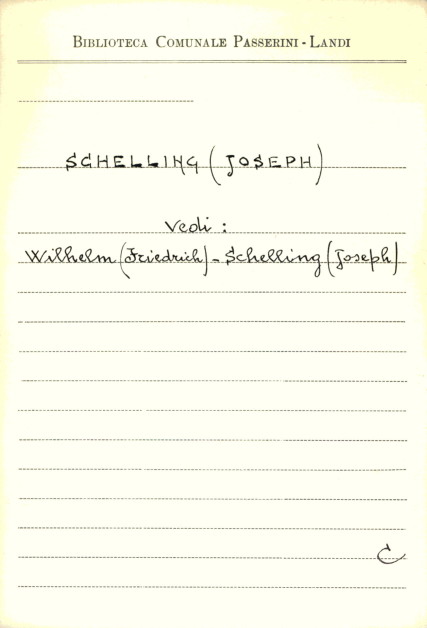 BIBLIOTECA COMUNALE PASSERINI - LANDI
SCHELLING (JOSEPH)
Vedi :
Wilhelm (Friedrich) - Schelling (Joseph)
C